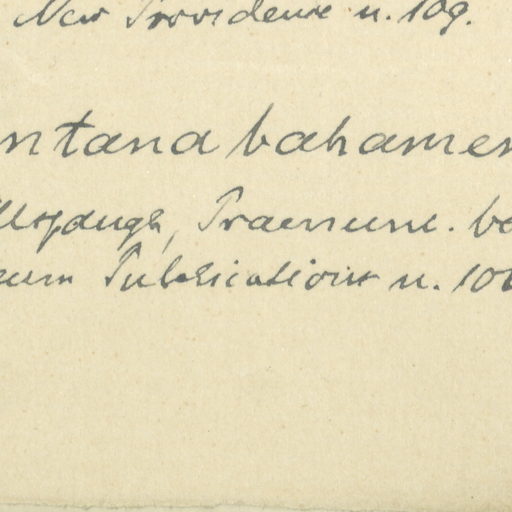 New Providence n. 109.
ntana bahamen
llspaugh, Praenunc. ba
eum Publications n. 106